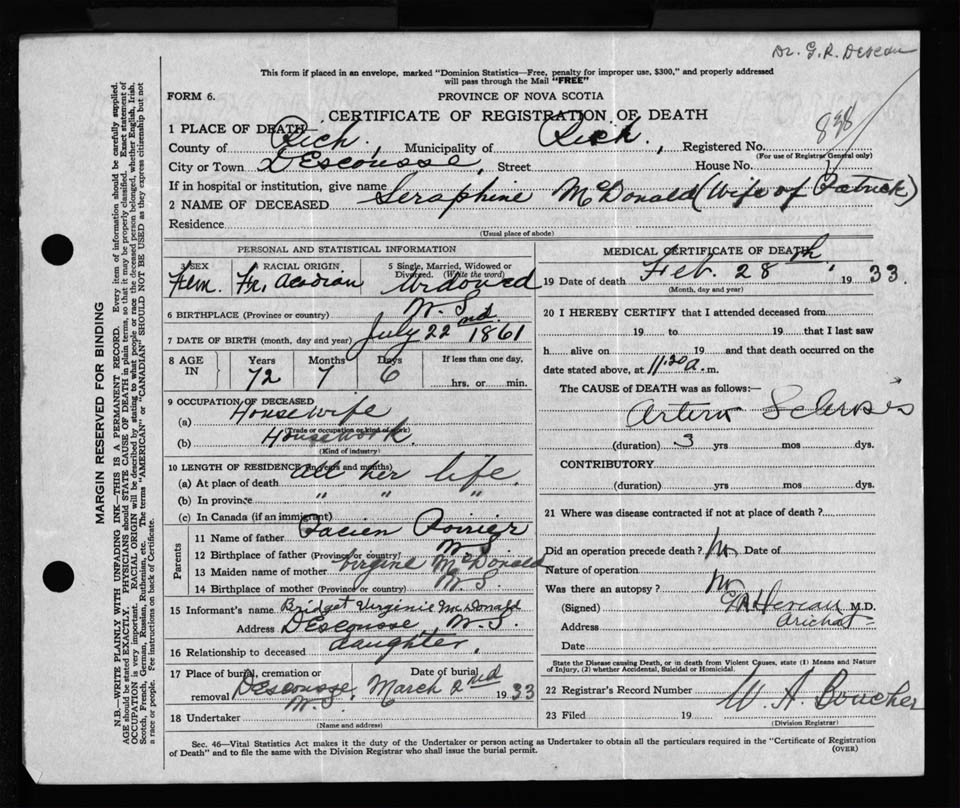 Dr. G. R. Deveau
This form if placed in an envelope, marked "Dominion Statistics—Free, penalty for improper use, $300," and properly addressed
will pass through the Mail "FREE"
FORM 6.
PROVINCE OF NOVA SCOTIA
CERTIFICATE OF REGISTRATION OF DEATH
838
1 PLACE OF DEATH—
County of Rich. Municipality of Rich., Registered No.
(For use of Registrar General only)
City or Town DEscousse, Street House No.
If in hospital or institution, give name
2 NAME OF DECEASED Seraphine McDonald (Wife of Patrick)
Residence
(Usual place of abode)
PERSONAL AND STATISTICAL INFORMATION
3 SEX Fem.
RACIAL ORIGIN Fr. Acadian
5 Single, Married, Widowed or Divorced. (Write the word) Widowed
6 BIRTHPLACE (Province or country) N. S.
7 DATE OF BIRTH (month, day and year) July 22nd 1861
8 AGE IN Years Months Days If less than one day,
72 7 6 hrs. or min.
9 OCCUPATION OF DECEASED
(a) Housewife
(Trade or occupation or kind of work)
(b) Housework.
(Kind of industry)
10 LENGTH OF RESIDENCE (in years and months)
(a) At place of death all her life.
(b) In province " " "
(c) In Canada (if an immigrant)
Parents
11 Name of father Poirier
12 Birthplace of father (Province or country) N. S.
13 Maiden name of mother Virginie McDonald
14 Birthplace of mother (Province or country) N. S.
15 Informant's name Bridget Virginie McDonald
Address DEscousse N. S.
16 Relationship to deceased daughter.
17 Place of burial, cremation or removal Descousse, N. S. Date of burial March 2nd 1933
18 Undertaker
(Name and address)
MEDICAL CERTIFICATE OF DEATH
19 Date of death Feb. 28th, 1933.
(Month, day and year)
20 I HEREBY CERTIFY that I attended deceased from
19 to 19 that I last saw
h alive on 19 and that death occurred on the
date stated above, at 11.20 a. m.
The CAUSE OF DEATH was as follows:—
Arterio Sclerosis
(duration) 3 yrs mos dys.
CONTRIBUTORY
(duration) yrs mos dys.
21 Where was disease contracted if not at place of death?
Did an operation precede death? No Date of
Nature of operation
Was there an autopsy? No
(Signed) G R Deveau M.D.
Address Arichat
Date
State the Disease causing Death, or in death from Violent Causes, state (1) Means and Nature
of Injury, (2) whether Accidental, Suicidal or Homicidal.
22 Registrar's Record Number
23 Filed 19 W. A. Boucher
(Division Registrar)
Sec. 46—Vital Statistics Act makes it the duty of the Undertaker or person acting as Undertaker to obtain all the particulars required in the "Certificate of Registration
of Death" and to file the same with the Division Registrar who shall issue the burial permit.
(OVER)
MARGIN RESERVED FOR BINDING
N.B.—WRITE PLAINLY WITH UNFADING INK—THIS IS A PERMANENT RECORD. Every item of information should be carefully supplied.
AGE should be stated EXACTLY. PHYSICIANS should STATE CAUSE OF DEATH in plain terms, so that it may be properly classified. Exact statement of
OCCUPATION is very important. RACIAL ORIGIN will be described by stating to what people or race the deceased person belonged, whether English, Irish,
Scotch, French, German, Russian, Ruthenian, etc. The terms "AMERICAN" or "CANADIAN" SHOULD NOT BE USED as they express citizenship but not
a race or people. See instructions on back of Certificate.